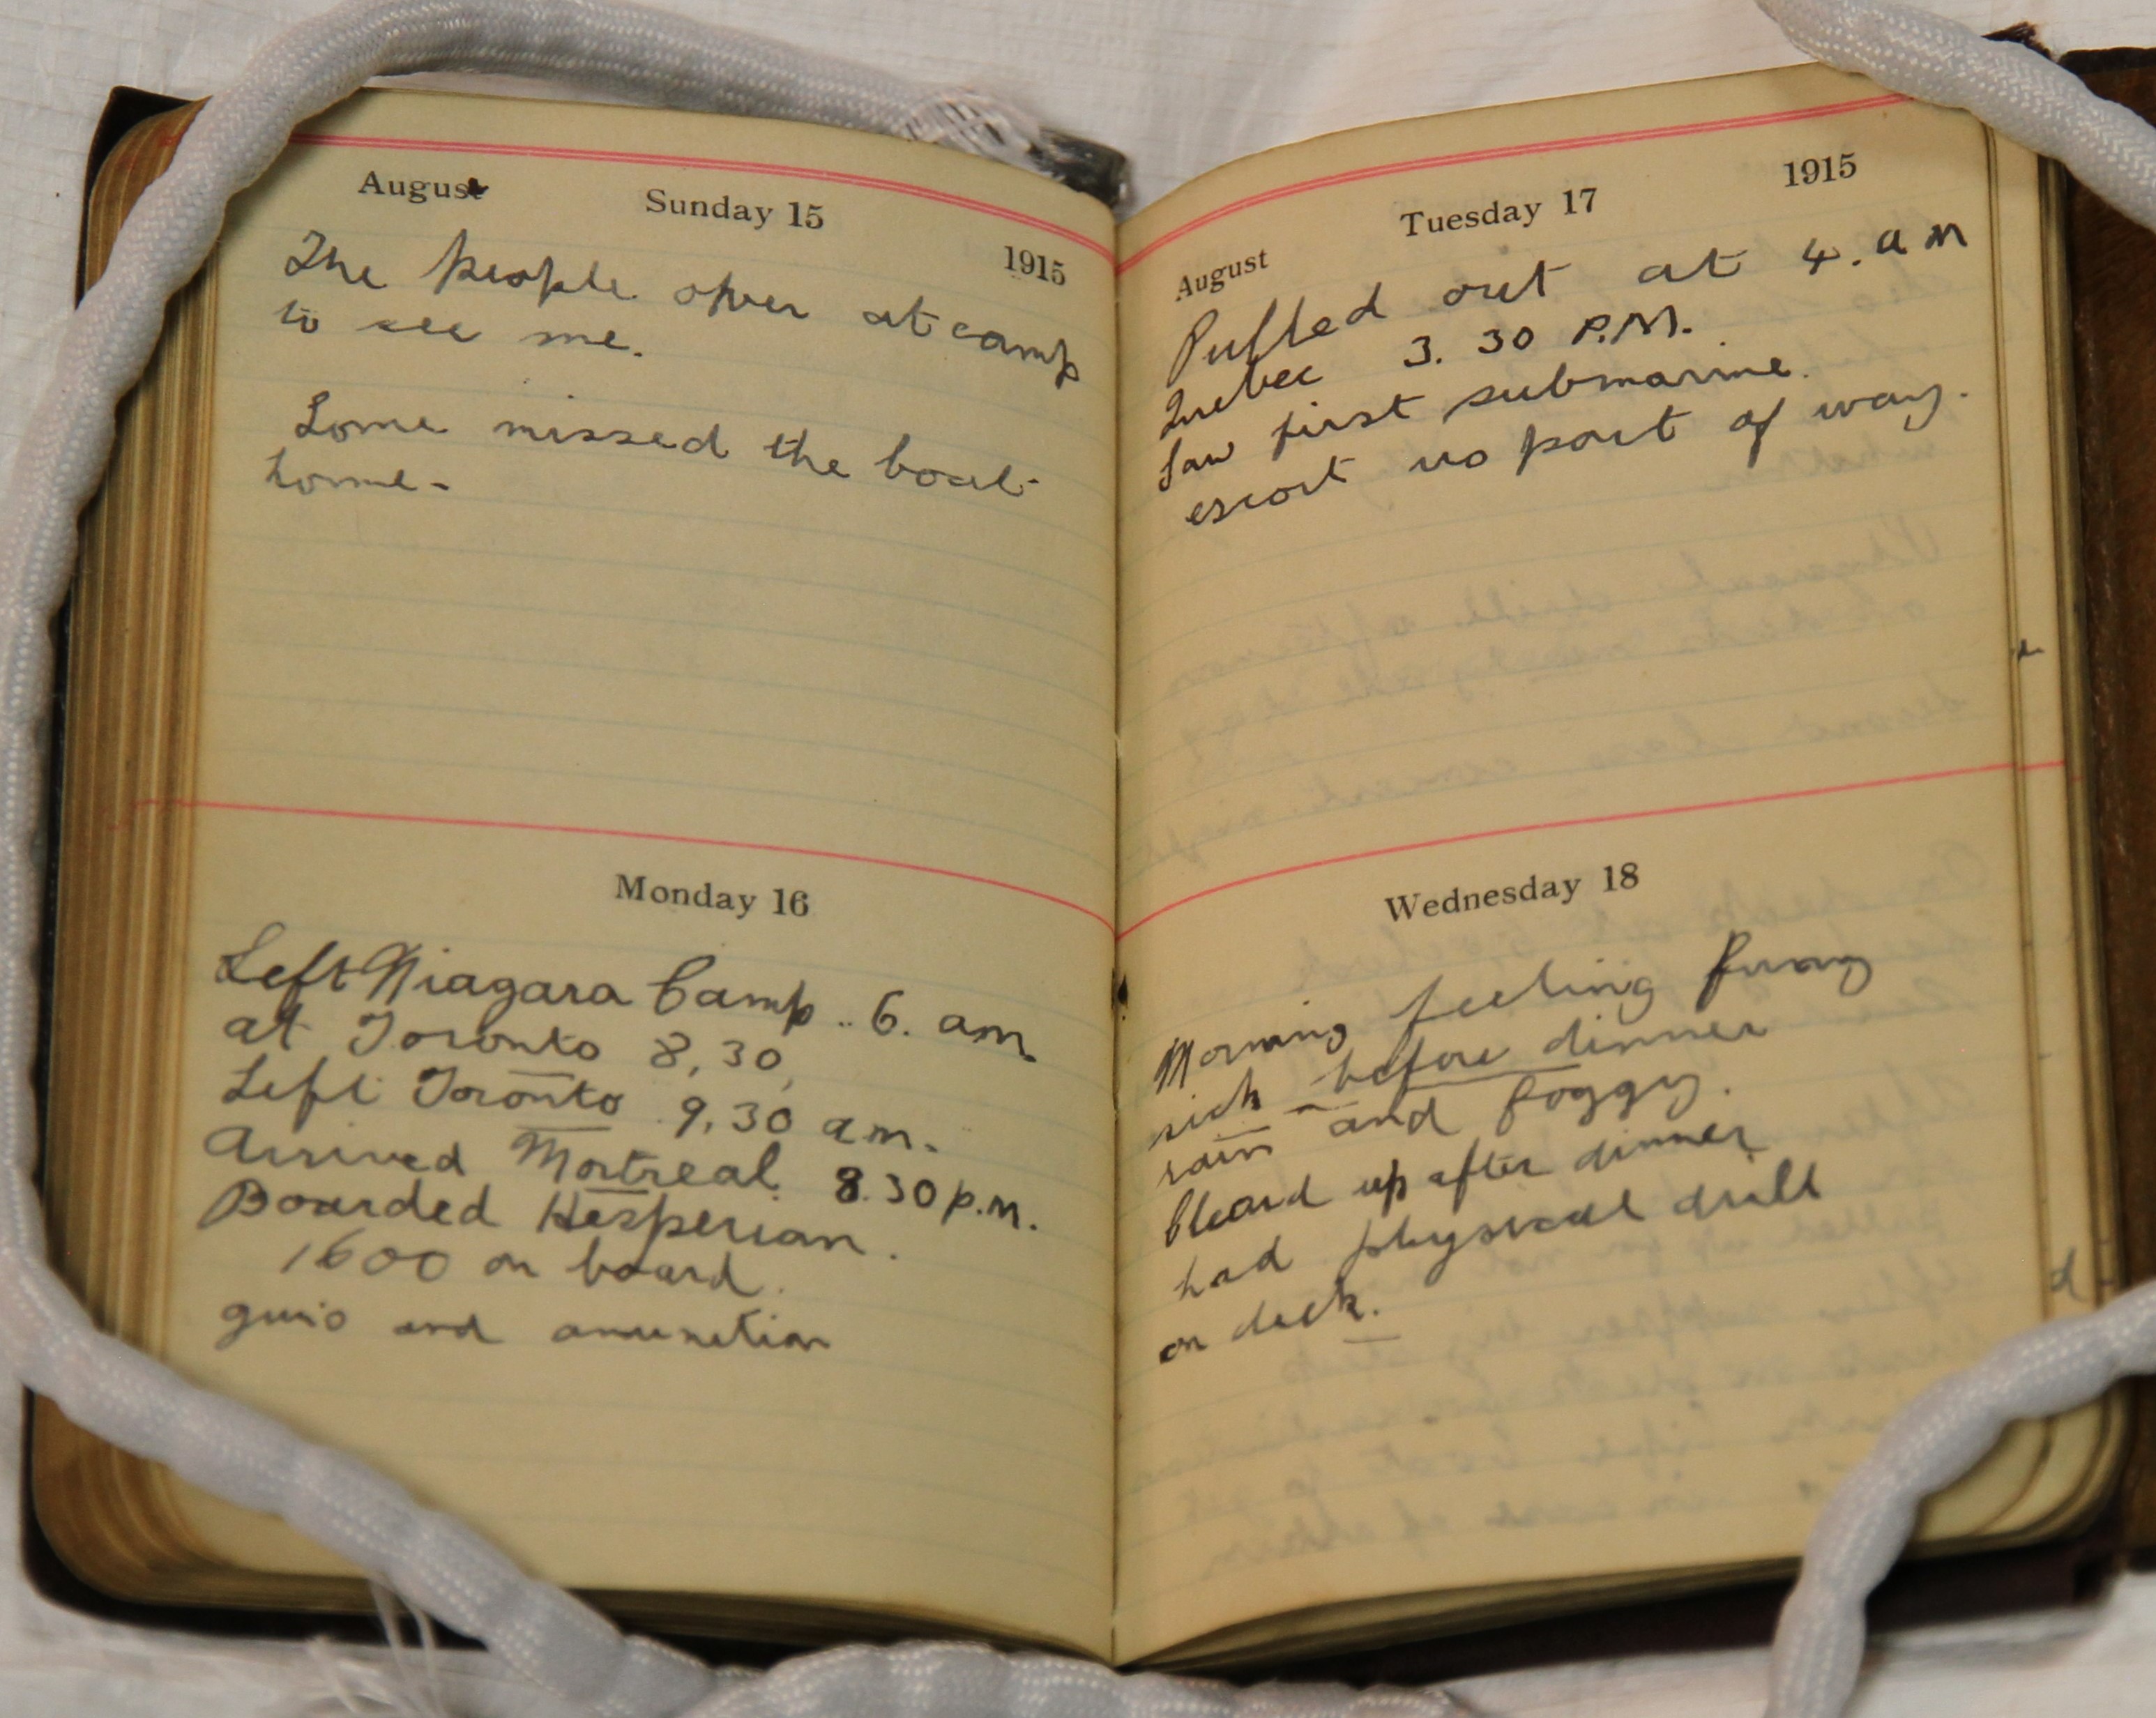 August Sunday 15 1915
The people over at camp
to see me.
Some missed the boat
home-
Monday 16
Left Niagara Camp .. 6. am.
at Toronto 8,30,
Left Toronto 9,30 am.
Arrived Montreal. 8.30 p.m.
Boarded Hesperian.
1600 on board.
guns and amunetion
August Tuesday 17 1915
Pulled out at 4. a m
Quebec 3. 30 P.M.
Saw first submarine.
escort us part of way.
Wednesday 18
Morning feeling funny
sick - before dinner
rain and foggy.
Cleard up after dinner
had physical drill
on deck.